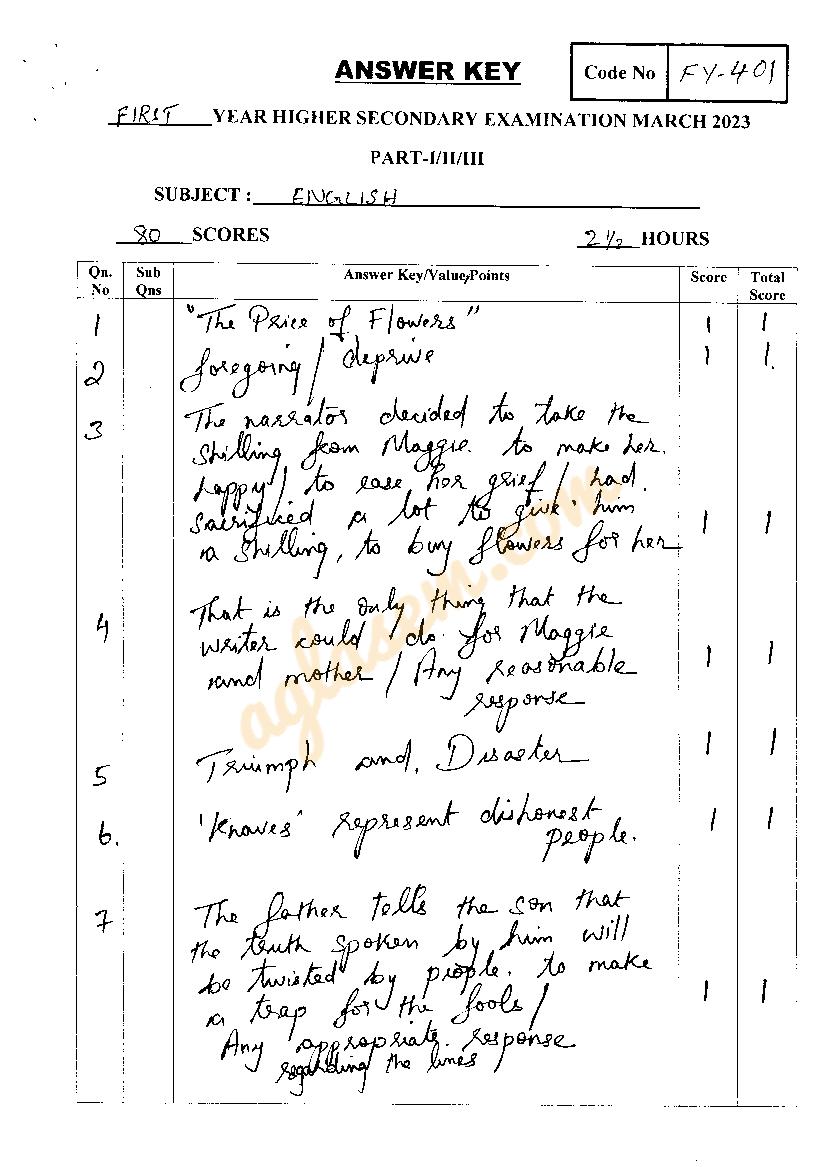 ANSWER KEY
Code No FY-401
FIRST YEAR HIGHER SECONDARY EXAMINATION MARCH 2023
PART-I/II/III
SUBJECT : ENGLISH
80 SCORES 2½ HOURS
Qn. No Sub Qns Answer Key/Value Points Score Total Score
1 "The Price of Flowers" 1 1
2 foregoing / deprive 1 1.
3 The narrator decided to take the
shilling from Maggie. to make her.
happy / to ease her grief / had.
sacrificed a lot to give him
a shilling, to buy flowers for her 1 1
4 That is the only thing that the
writer could do for Maggie
and mother / Any reasonable 1 1
response
5 Triumph and. Disaster 1 1
6. 'Knaves' represent dishonest 1 1
people.
7 The father tells the son that
the truth spoken by him will
be twisted by people. to make
a trap for the fools / 1 1
Any appropriate response
regarding the lines
aglasem.com